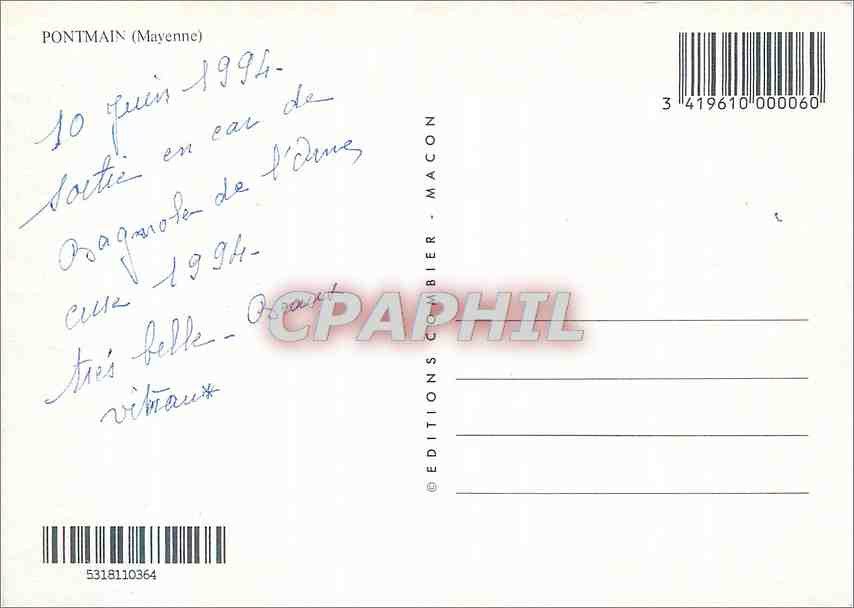 PONTMAIN (Mayenne)
10 juin 1994-
sortie en car de
Bagnoles de l'Orne
cure 1994-
très belle - Beaux
vitraux
3 419610 000060
© EDITIONS COMBIER - MACON
CPAPHIL
5318110364